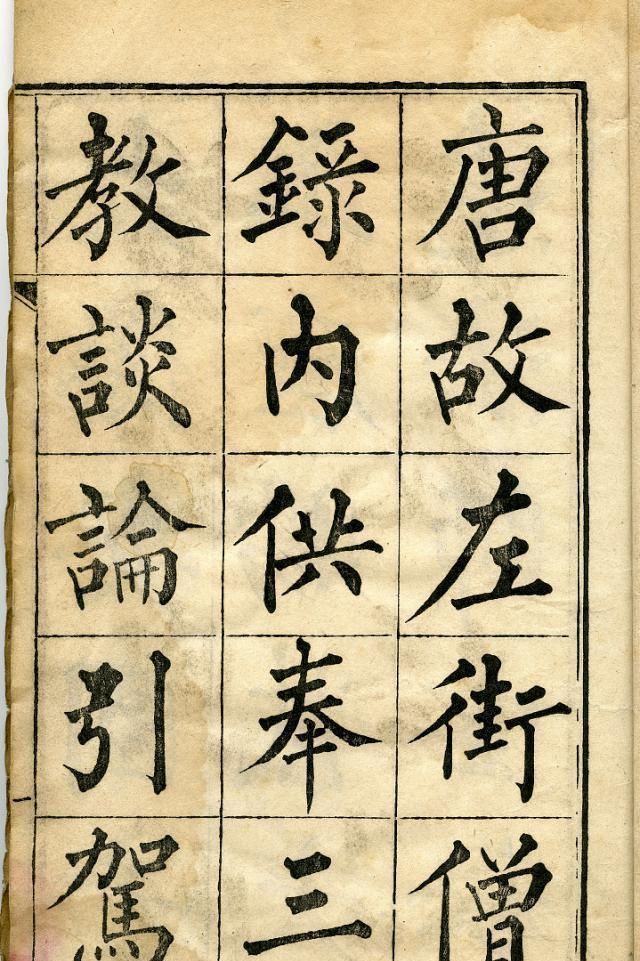 唐故左街僧
錄内供奉三
教談論引駕